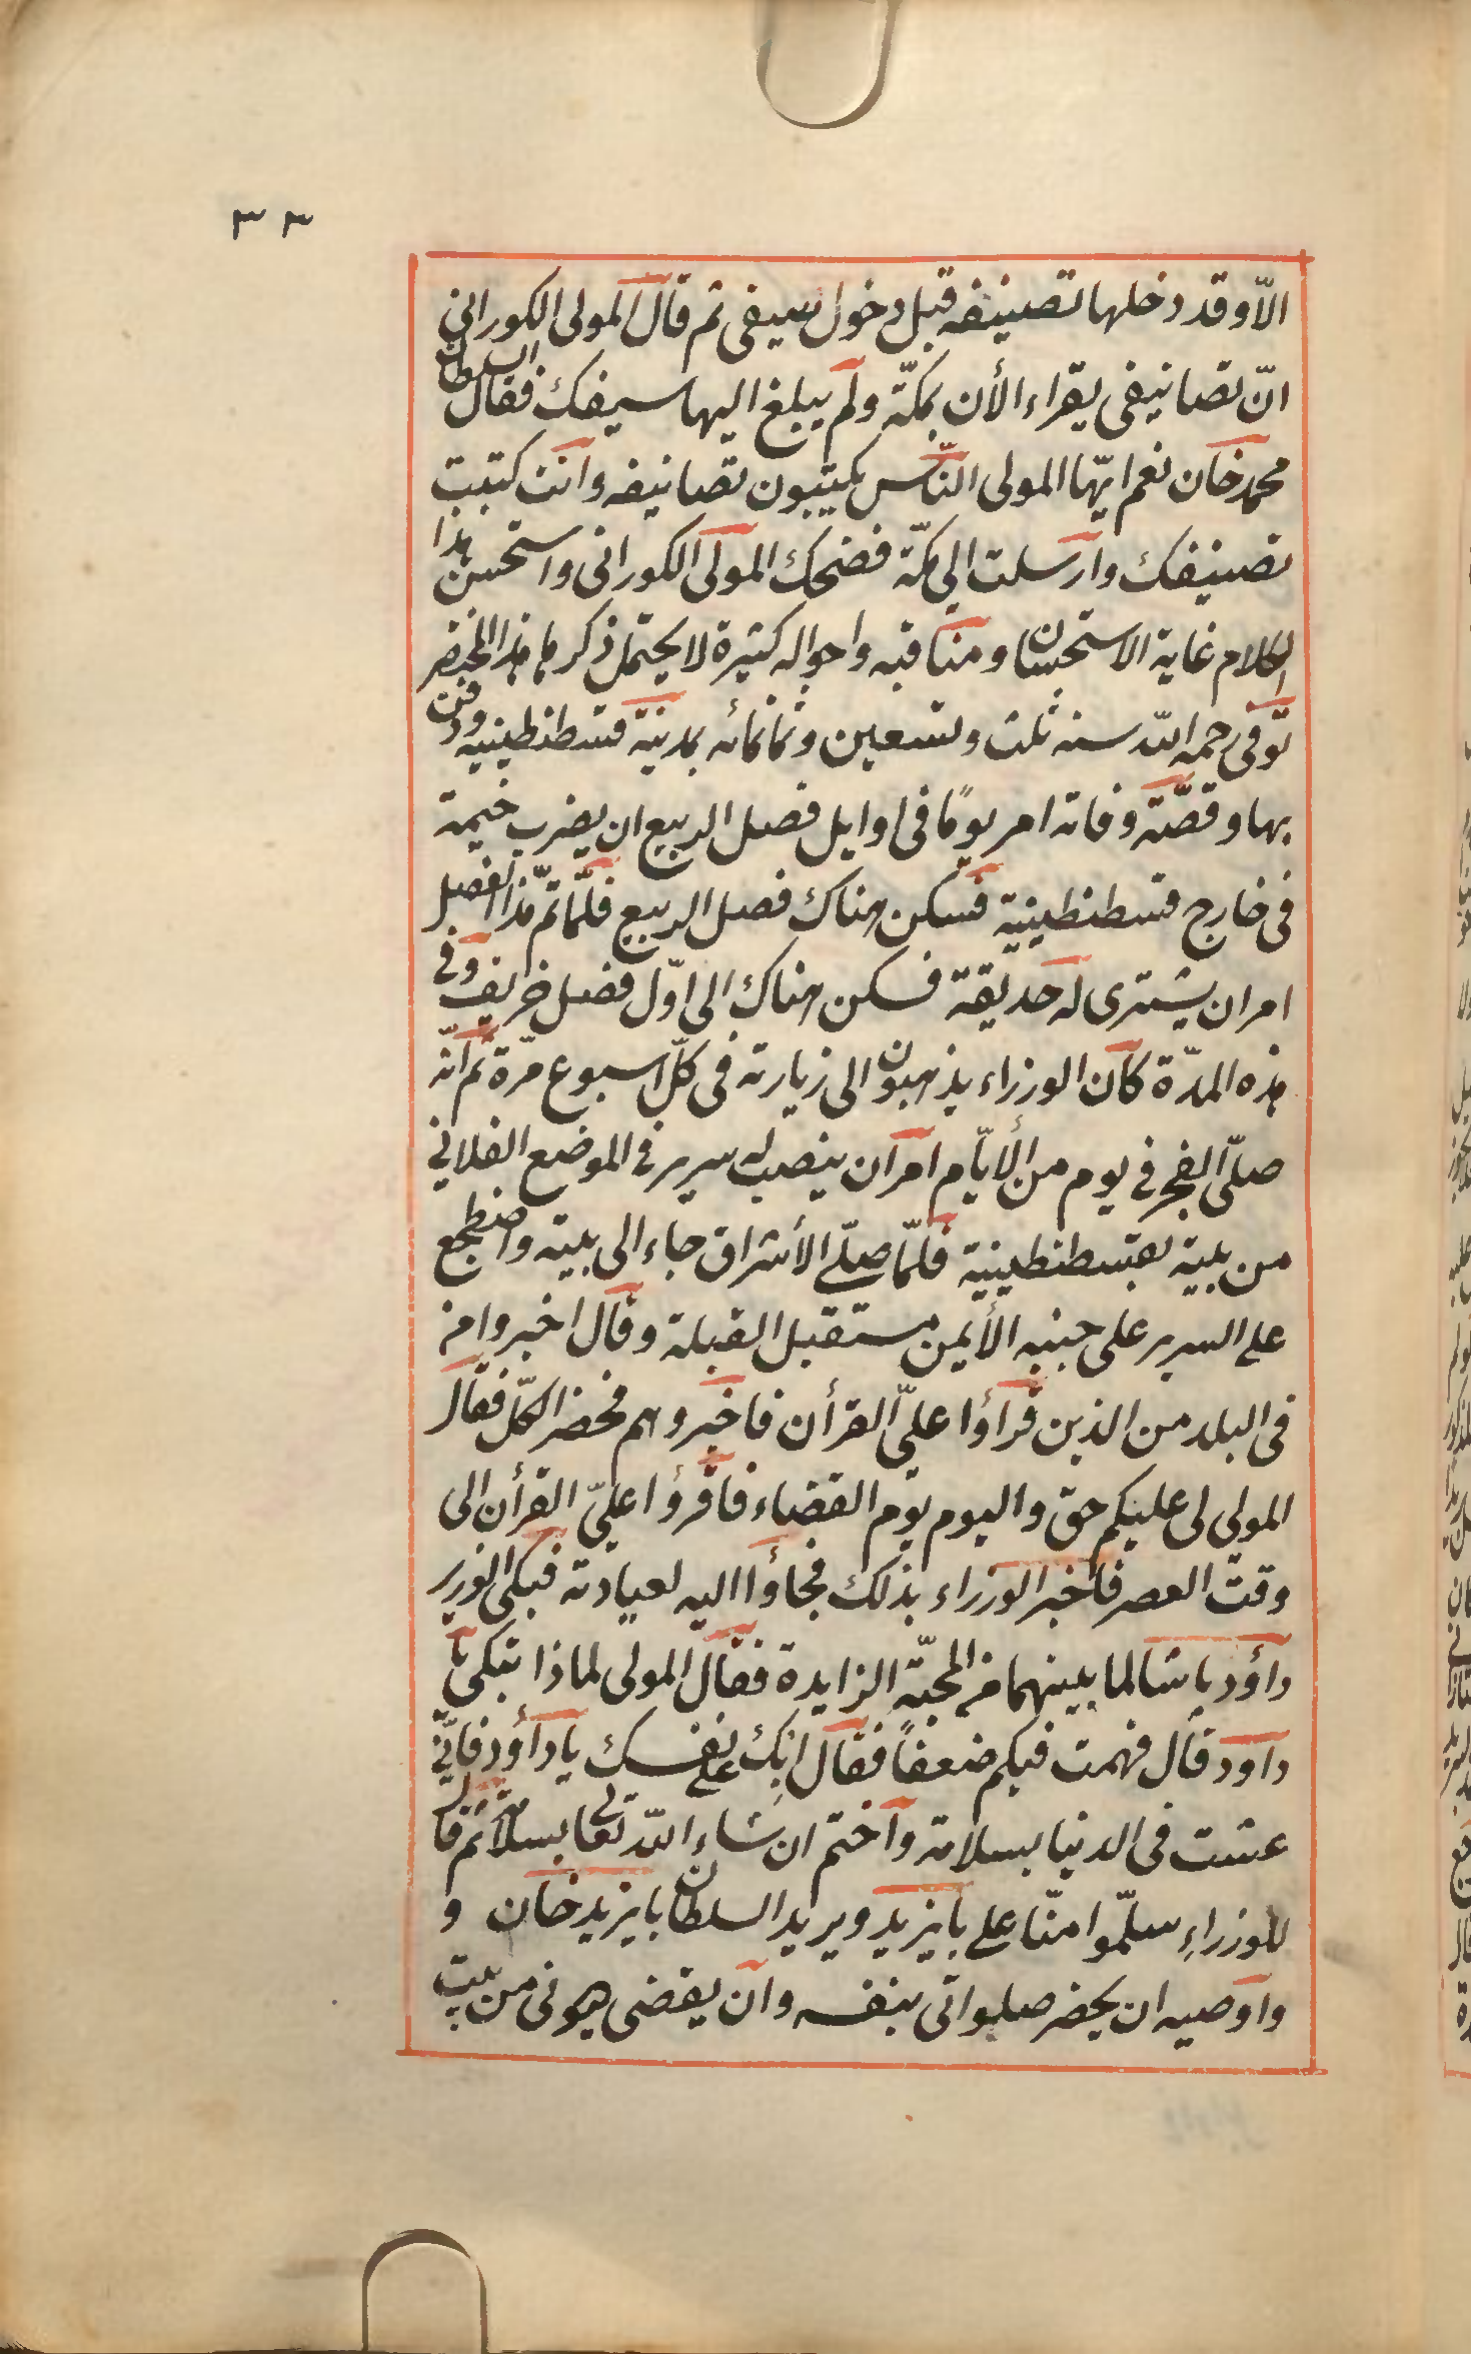 ٣٣
الّا وقد دخلها تصنيفه قبل دخول سيفى ثم قال المولى الكورانى
انّ تصانيفى يقراء الأن بمكّة ولم يبلغ اليها سيفك فقال السلطان
محمد خان نعم ايّها المولى النّاس يكتبون تصانيفه وانت كتبت
تصنيفك وارسلت الى مكّة فضحك المولى الكورانى واستحسن هذا
الكلام غاية الاستحسان ومناقبه واحواله كثيرة لا يحتمل ذكرها هذا المختصر
توفى رحمه الله سنه ثلث وتسعين وثمانمائه بمدينة قسطنطينيه ودفن
بها وقصّة وفاته امر يومًا فى اوايل فصل الربيع ان يضرب خيمة
فى خارج قسطنطينية فسكن هناك فصل الربيع فلمّا تمّ هذا الفصل
امر ان يشترى له حديقة فسكن هناك الى اوّل فصل خريف وفى
هذه المدّة كان الوزراء يذهبون الى زيارته فى كلّ اسبوع مرّة ثم انّه
صلّى الفجر فى يوم من الأيّام امر ان ينصب له سرير فى الموضع الفلانى
من بيته بقسطنطينية فلمّا صلّى الأشراق جاء الى بيته واضطجع
على السرير على جنبه الأيمن مستقبل القبلة وقال اخبروا من
فى البلد من الذين قراؤا علىّ القرأن فاخبروهم فحضر الكلّ فقال
المولى لى عليكم حق واليوم يوم القضاء فاقرؤا علىّ القرأن الى
وقت العصر فاخبر الوزراء بذلك فجاؤا اليه لعيادته فبكى الوزير
داؤد باشا لما بينهما من المحبّة الزايدة فقال المولى لماذا تبكى يا
داود قال فهمت فيكم ضعفاً فقال ابك على نفسك يا داؤد فانّى
عشت فى الدنيا بسلامة واختم ان شاء الله تعالى بسلامة ثم قال
للوزراء سلّموا منّا على بايزيد ويريد السلطان بايزيد خان و
واوصيه ان يحضر صلواتى بنفسه وان يقضى ديونى من بيت